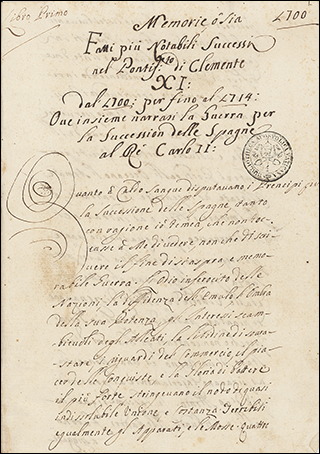 Libro Primo
1700
Memorie ô sia
Fatti più Notabili Successi
nel Pontif.to di Clemente
XI:
dal 1700: per fino al 1714:
Oue insieme narrasi la Guerra per
la Succession delle Spagne
al Rè Carlo II:
Quanto è Caldo Sangue disputauano i Principi per
la Successione delle Spagne, tanto
con ragione io temea, che non toc-
casse à Me di uedere non che di scri-
uere il fine di sì aspra, e memo-
rabil Guerra. L'Odio inferocito delle
Nazioni, la diffidenza dell'Emulo, l'Ombra
della sua Potenza, gl'Interessi scam-
bieuoli degli Alleati, la
i riguardi del Commercio, il pia-
cer delle Conquiste, e la Gloria di
il più forte stringeuano il nodo tequasi
Indissolubile Vnione, e Costanza
egualmente gl'Apparati, e le Mosse. Quattro